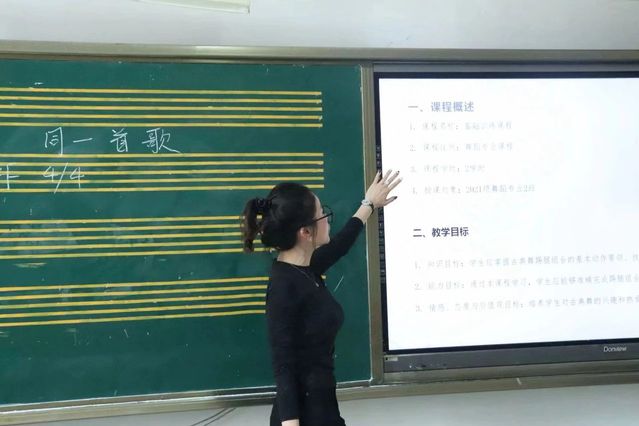 同一首歌
4/4
一、课程概述
1. 课程名称：基础训练课程
2. 课程性质：舞蹈专业课程
3. 课程学时：2学时
4. 授课对象：2021级舞蹈专业2班
二、教学目标
1. 知识目标：学生应掌握古典舞踢腿组合的基本动作要领，
2. 能力目标：通过本课程学习，学生应能够准确完成踢腿组合
3. 情感、态度与价值观目标：培养学生对古典舞的兴趣和热
Donview